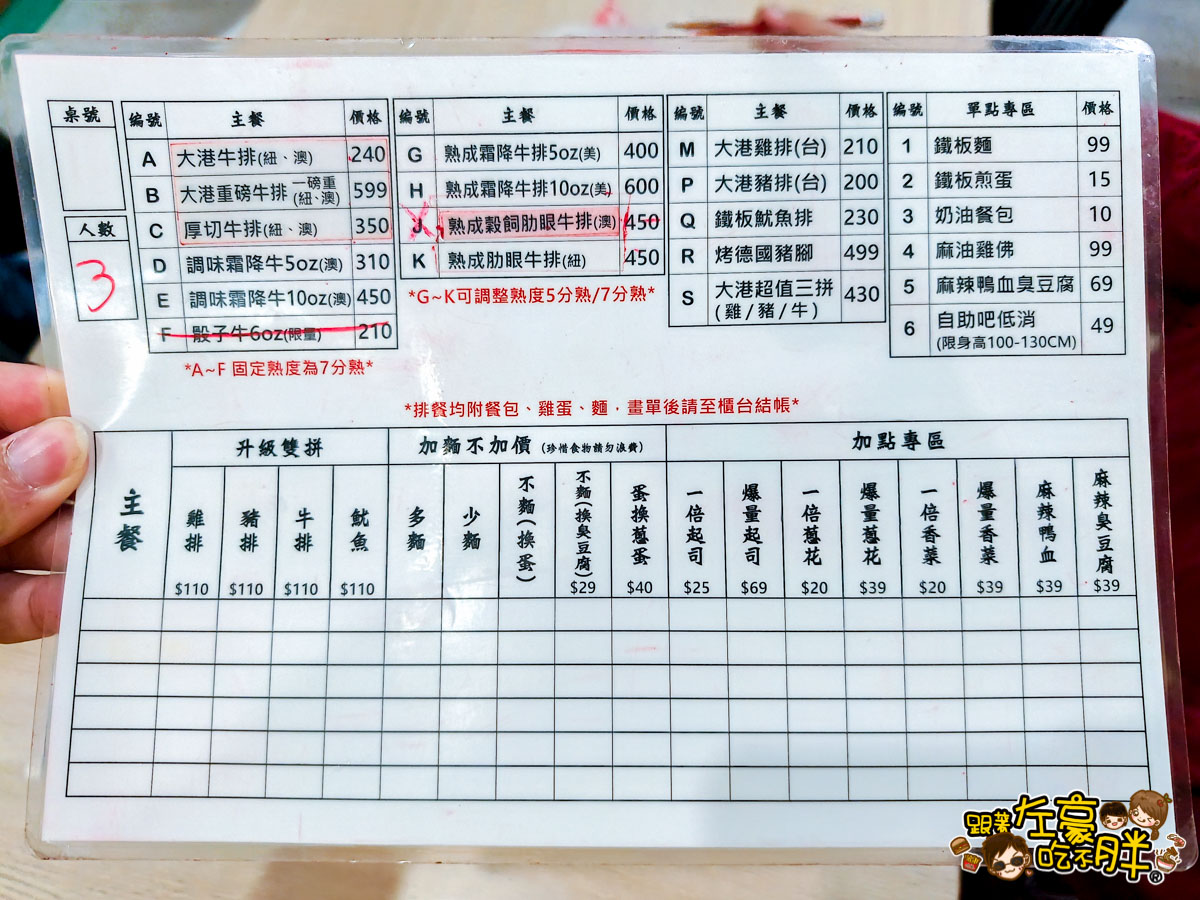 桌號
人數
3
編號 主餐 價格
A 大港牛排(紐、澳) 240
B 大港重磅牛排 一磅重(紐、澳) 599
C 厚切牛排(紐、澳) 350
D 調味霜降牛5oz(澳) 310
E 調味霜降牛10oz(澳) 450
F 骰子牛6oz(限量) 210
*A~F 固定熟度為7分熟*
編號 主餐 價格
G 熟成霜降牛排5oz(美) 400
H 熟成霜降牛排10oz(美) 600
J 熟成穀飼肋眼牛排(澳) 450
K 熟成肋眼牛排(紐) 450
*G~K可調整熟度5分熟/7分熟*
編號 主餐 價格
M 大港雞排(台) 210
P 大港豬排(台) 200
Q 鐵板魷魚排 230
R 烤德國豬腳 499
S 大港超值三拼 430
(雞/豬/牛)
編號 單點專區 價格
1 鐵板麵 99
2 鐵板煎蛋 15
3 奶油餐包 10
4 麻油雞佛 99
5 麻辣鴨血臭豆腐 69
6 自助吧低消 49
(限身高100-130CM)
*排餐均附餐包、雞蛋、麵，畫單後請至櫃台結帳*
主餐
升級雙拼
雞排 $110
豬排 $110
牛排 $110
魷魚 $110
加麵不加價 (珍惜食物請勿浪費)
多麵
少麵
不麵(換蛋)
不麵(換臭豆腐) $29
蛋換蔥蛋 $40
加點專區
一倍起司 $25
爆量起司 $69
一倍蔥花 $20
爆量蔥花 $39
一倍香菜 $20
爆量香菜 $39
麻辣鴨血 $39
麻辣臭豆腐 $39
跟著左豪吃不胖®